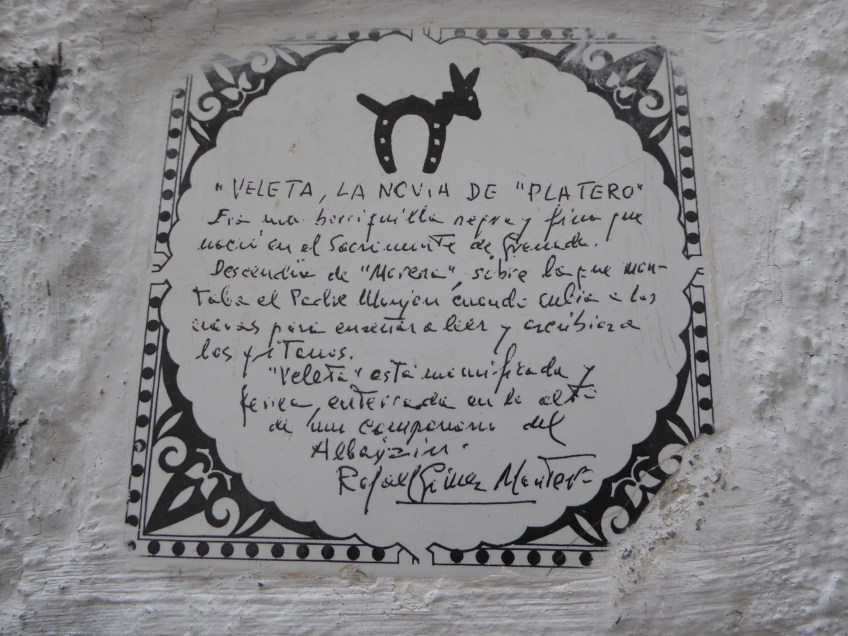 "VELETA, LA NOVIA DE "PLATERO"
Era una borriquilla negra y fina que
nació en el Sacromonte de Granada.
Descendía de "Morena", sobre la que mon-
taba el Padre Manjón cuando subía a las
cuevas para enseñar a leer y escribir a
los gitanos.
"Veleta" está momificada y
enterrada en lo alto
de un campanario del
Albayzín.
Rafael Gómez Montero